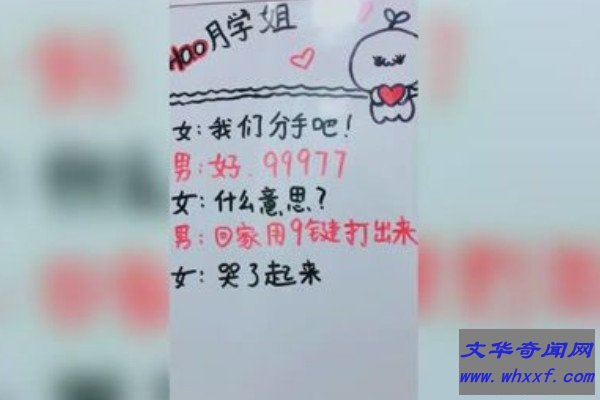 400月学姐
女:我们分手吧!
男:好.99977
女:什么意思?
男:回家用9键打出来
女:哭了起来
文华奇闻网
www.whxxf.com